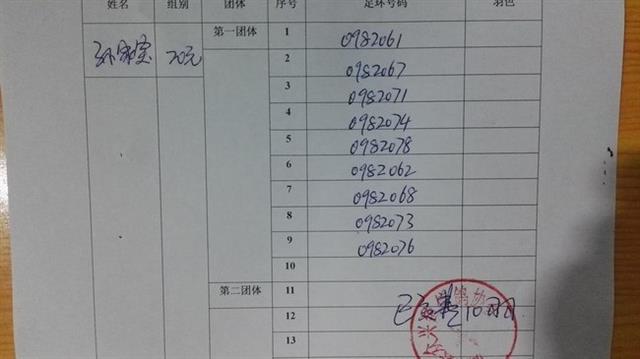 姓名 组别 团体 序号 足环号码 羽色
第一团体 1 0982061
20元 2 0982067
3 0982071
4 0982074
5 0982078
6 0982062
7 0982068
8 0982073
9 0982076
10
第二团体 11
12
13